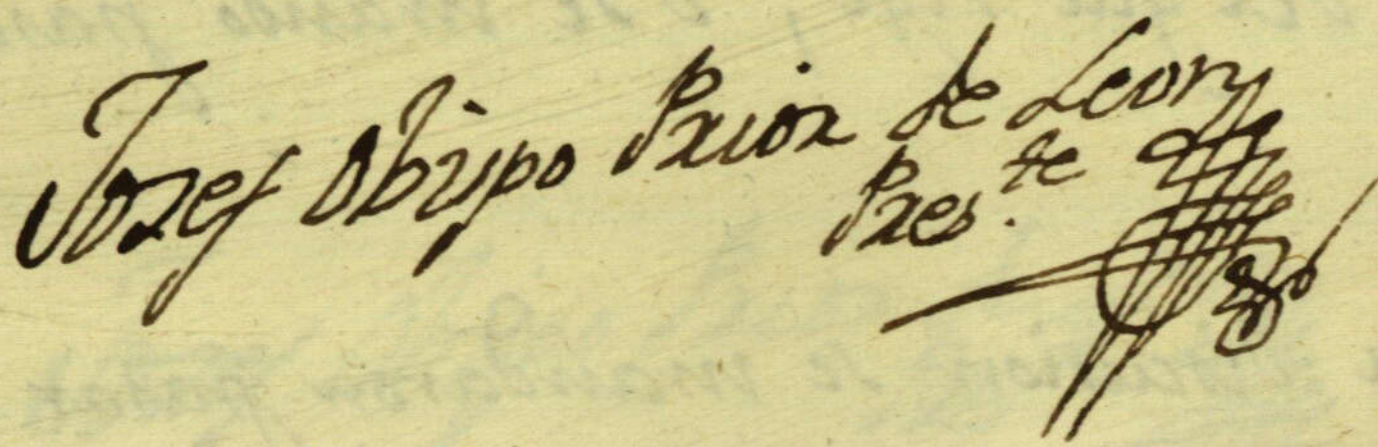 Jozef Obispo Prior de Leon
Pres.te